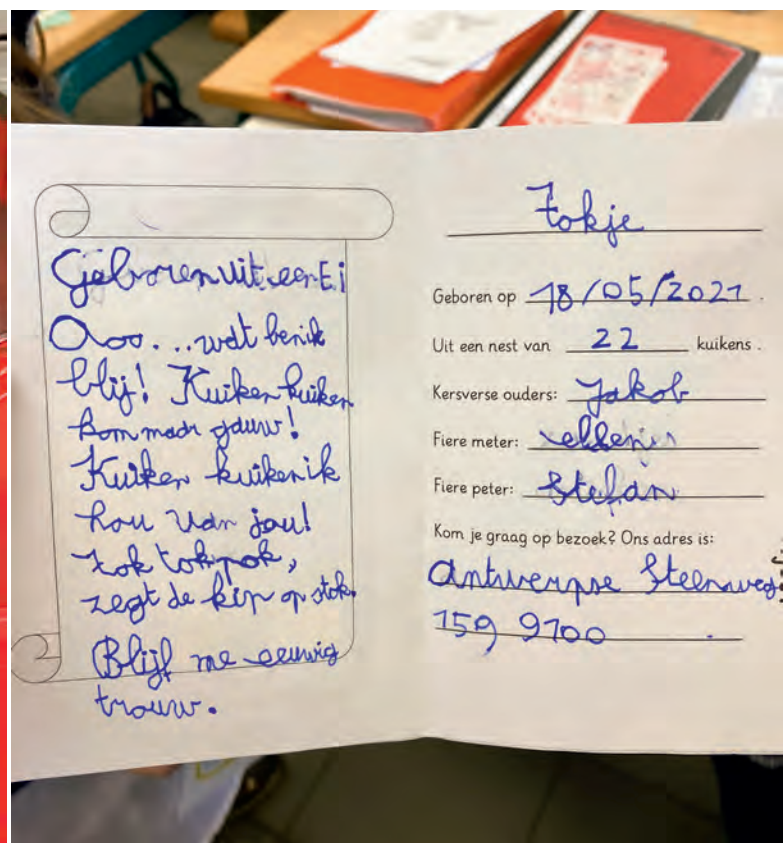 Geboren uit een Ei
Ooo...wat ben ik
blij! Kuiken kuiken
kom maar gauw!
Kuiken kuiken ik
hou van jou!
tok tok pok,
zegt de kip op stok.
Blijf me eeuwig
trouw.
Tokje
Geboren op 18/05/2021.
Uit een nest van 22 kuikens.
Kersverse ouders: Jakob
Fiere meter:
Fiere peter: Stefan
Kom je graag op bezoek? Ons adres is:
Antwerpse Steenweg
159 9100